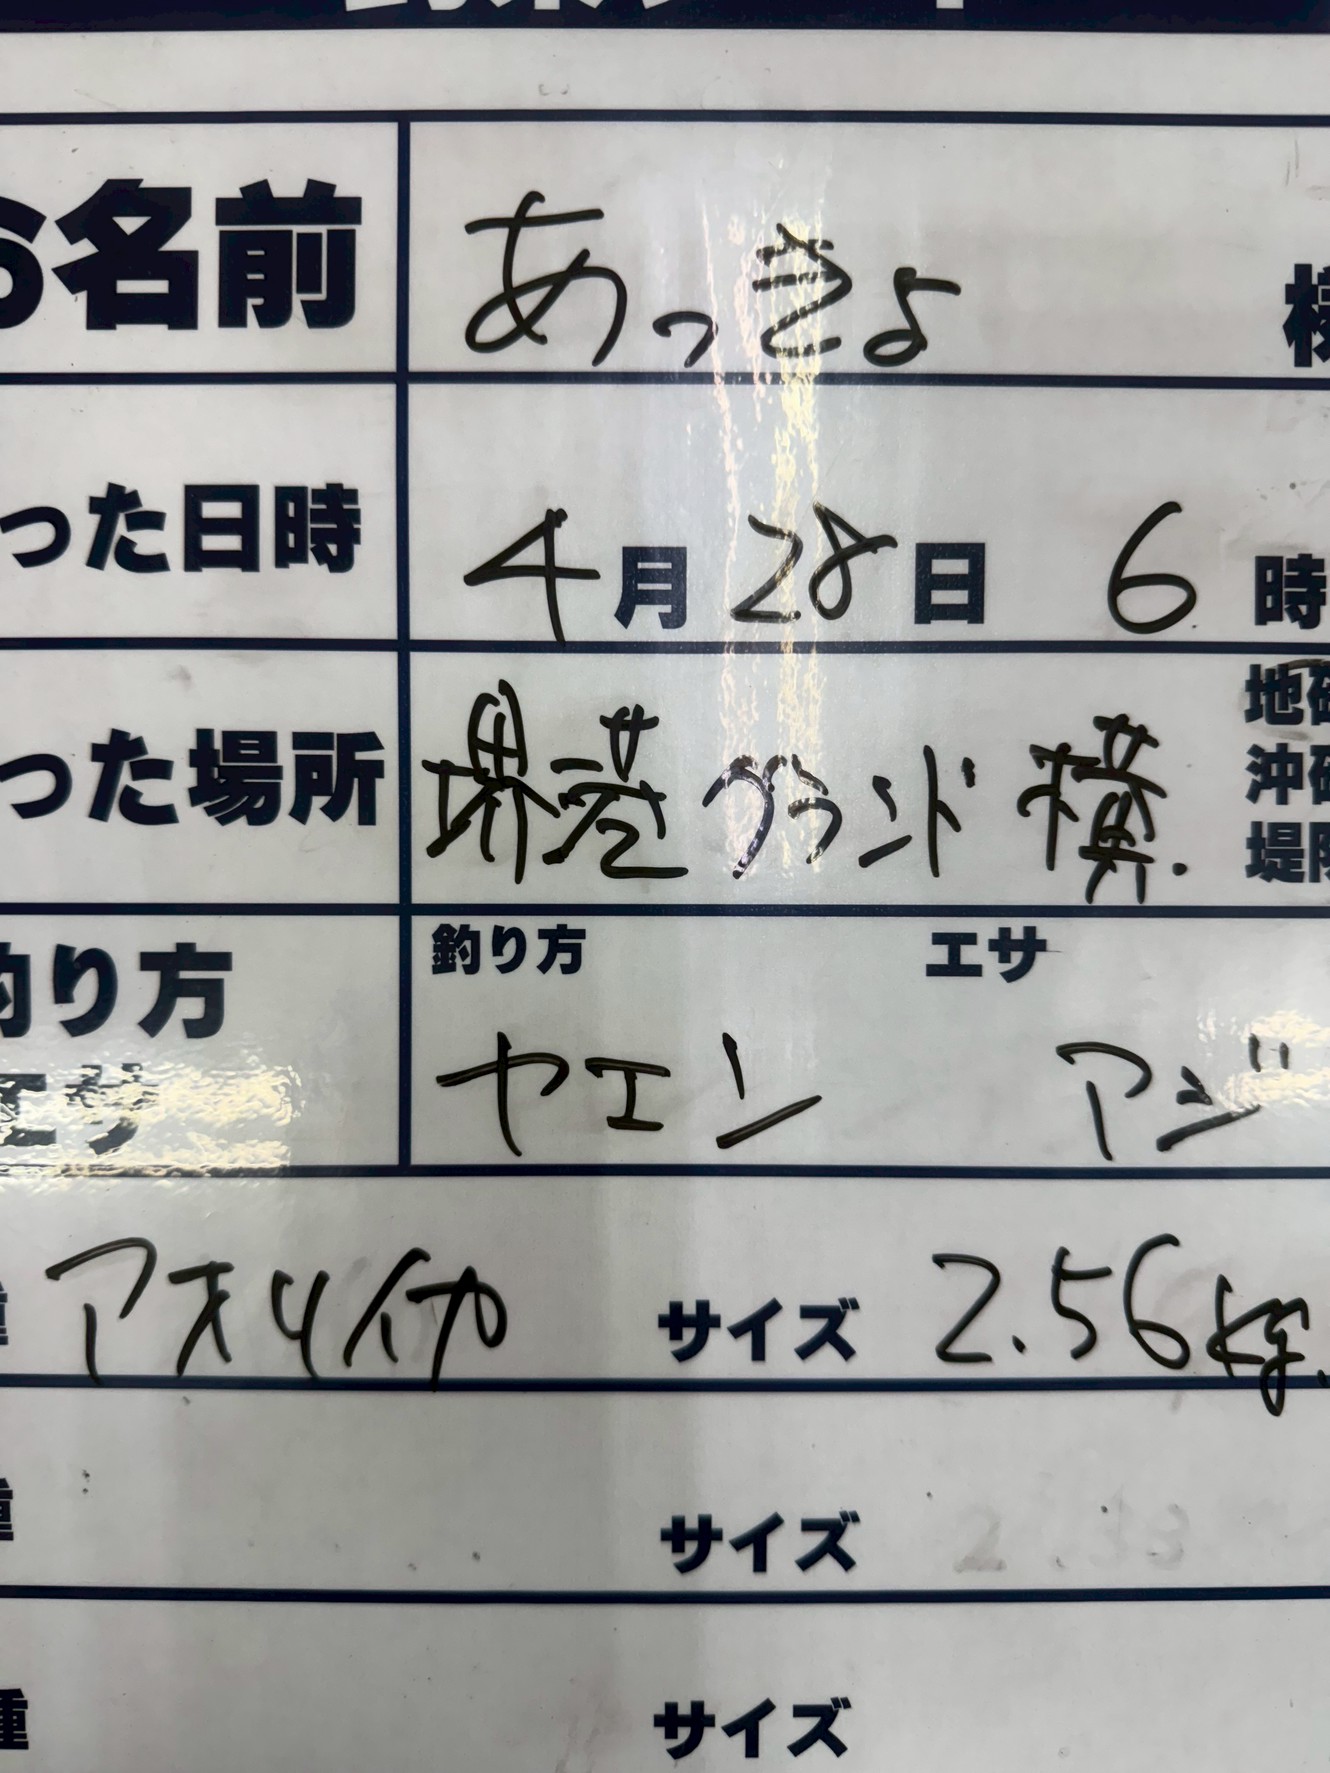 お名前 あっきょ 様
った日時 4月28日 6時
地磯
った場所 堺港グランド横. 沖磯
堤防
釣り方 エサ
釣り方 ヤエン アジ
エサ
種 アオリイカ サイズ 2.56kg.
種 サイズ 2.33
種 サイズ